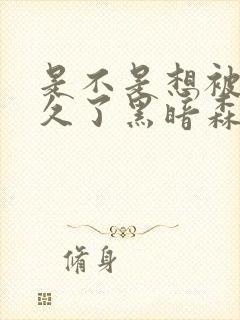 是不是想被
久了黑暗森
脩身